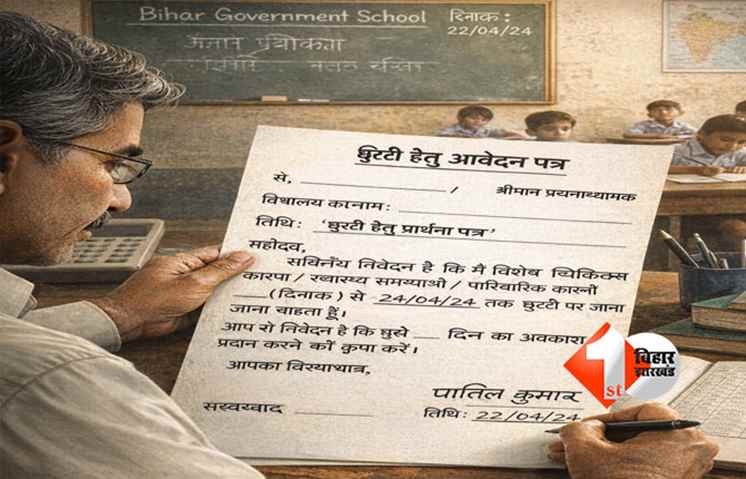 Bihar Government School
दिनाक :
22/04/24
घुरटी हेतु आवेदन पत्र
से, ____________ / श्रीमान प्रयनाथ्यामक
विषालय काःनाम: ____________
तिथि: 'घुरटी हेतु प्रार्थना पत्र'
सहीदव,
सविनँय निवेदन है कि मै विशेब
कारपा / स्वारथ्य समय्याओ / पारिबारिक कारनो
___ (दिनाक) से 24/04/24 तक घुरटी पर जाना
जाना चाहता हूँ।
आप से निवेदन है कि घुझे ___ दिन का अवकारा
प्रदान करने कीं कुपा करें।
आपका विरयाथात्र,
पातिल कुमार
सस्वरवाद ________ तिथि: 22/04/24
1st
बिहार
झारखंड